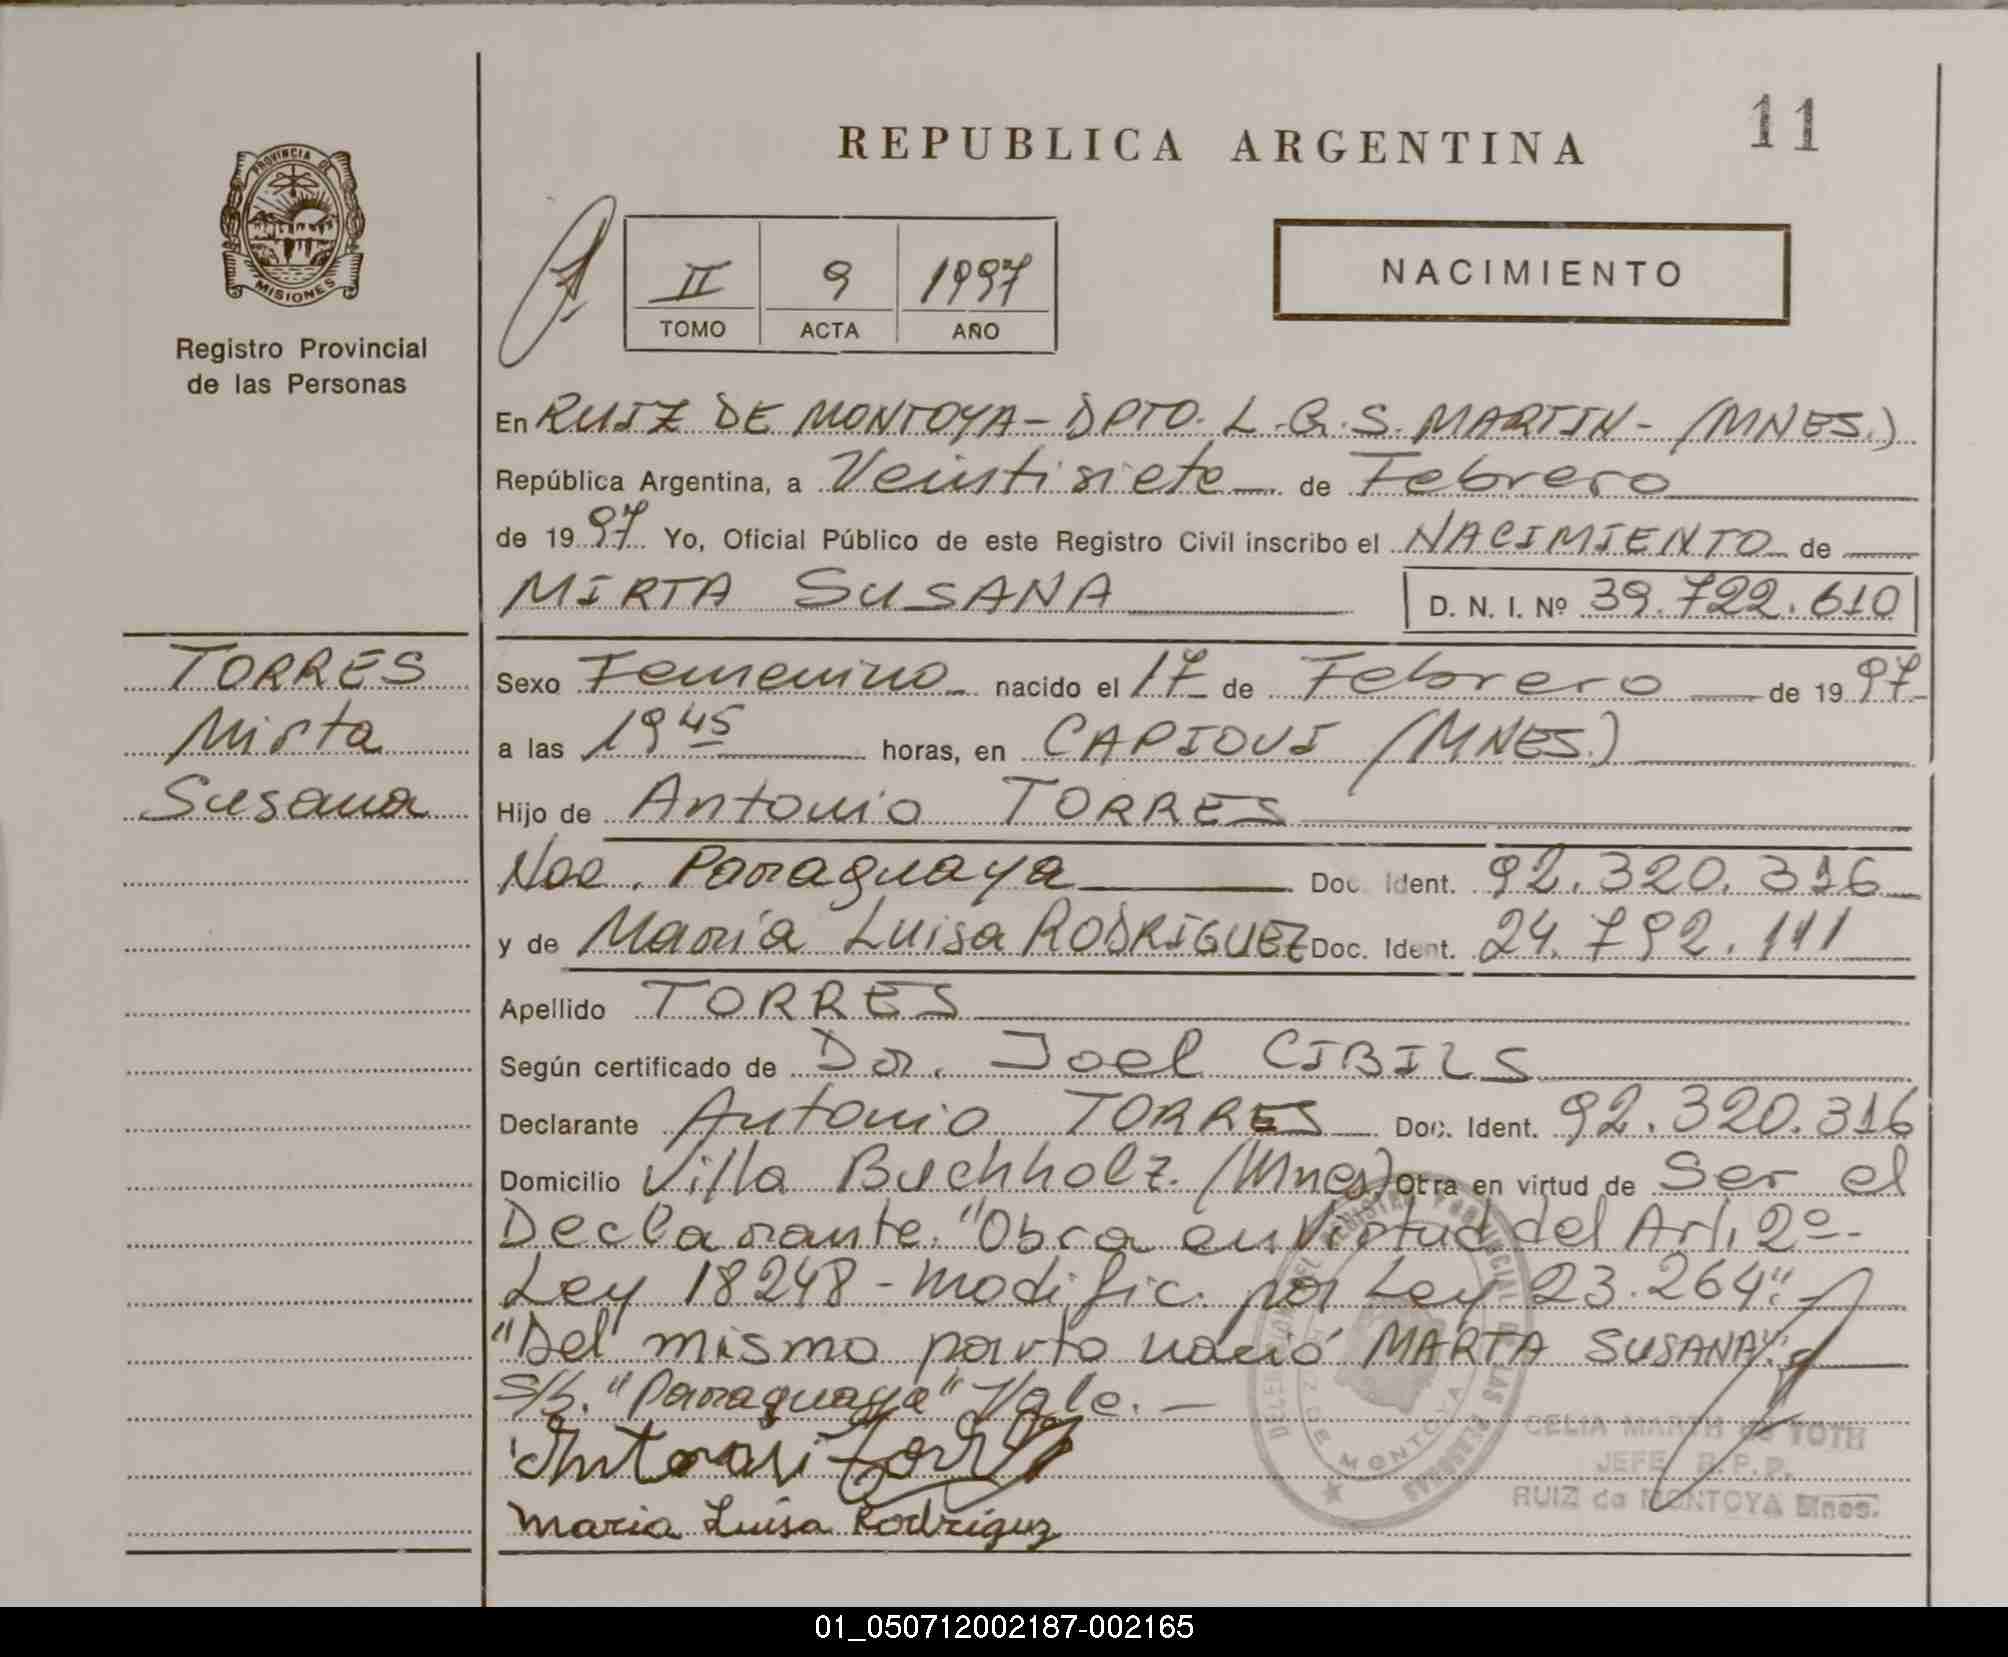 REPUBLICA ARGENTINA
11
PROVINCIA DE
MISIONES
Registro Provincial
de las Personas
II 9 1997
TOMO ACTA AÑO
NACIMIENTO
En RUIZ DE MONTOYA - DPTO. L.G.S. MARTIN - (MNES.)
República Argentina, a Veintisiete de Febrero
de 1997 Yo, Oficial Público de este Registro Civil inscribo el NACIMIENTO de
MIRTA SUSANA D. N. I. Nº 39.722.610
TORRES
Mirta
Susana
Sexo Femenino nacido el 17 de Febrero de 1997
a las 19 45 horas, en CAPIOVI (MNES.)
Hijo de Antonio TORRES
Nac. Paraguaya Doc. Ident. 92.320.316
y de María Luisa RODRIGUEZ Doc. Ident. 24.792.111
Apellido TORRES
Según certificado de Dr. Joel CIBILS
Declarante Antonio TORRES Doc. Ident. 92.320.316
Domicilio Villa Buchholz. (Mnes) Otra en virtud de Ser el
Declarante. "Obra en Virtud del Art. 2º-
Ley 18248 - modific. por Ley 23.264".
"Del mismo parto nació MARTA SUSANA".
S/b. "Paraguaya" Vale. -
Maria Luisa Rodriguez
CELIA MARTH de TOTH
JEFE R.P.P.
RUIZ de MONTOYA Mnes.
01_050712002187-002165